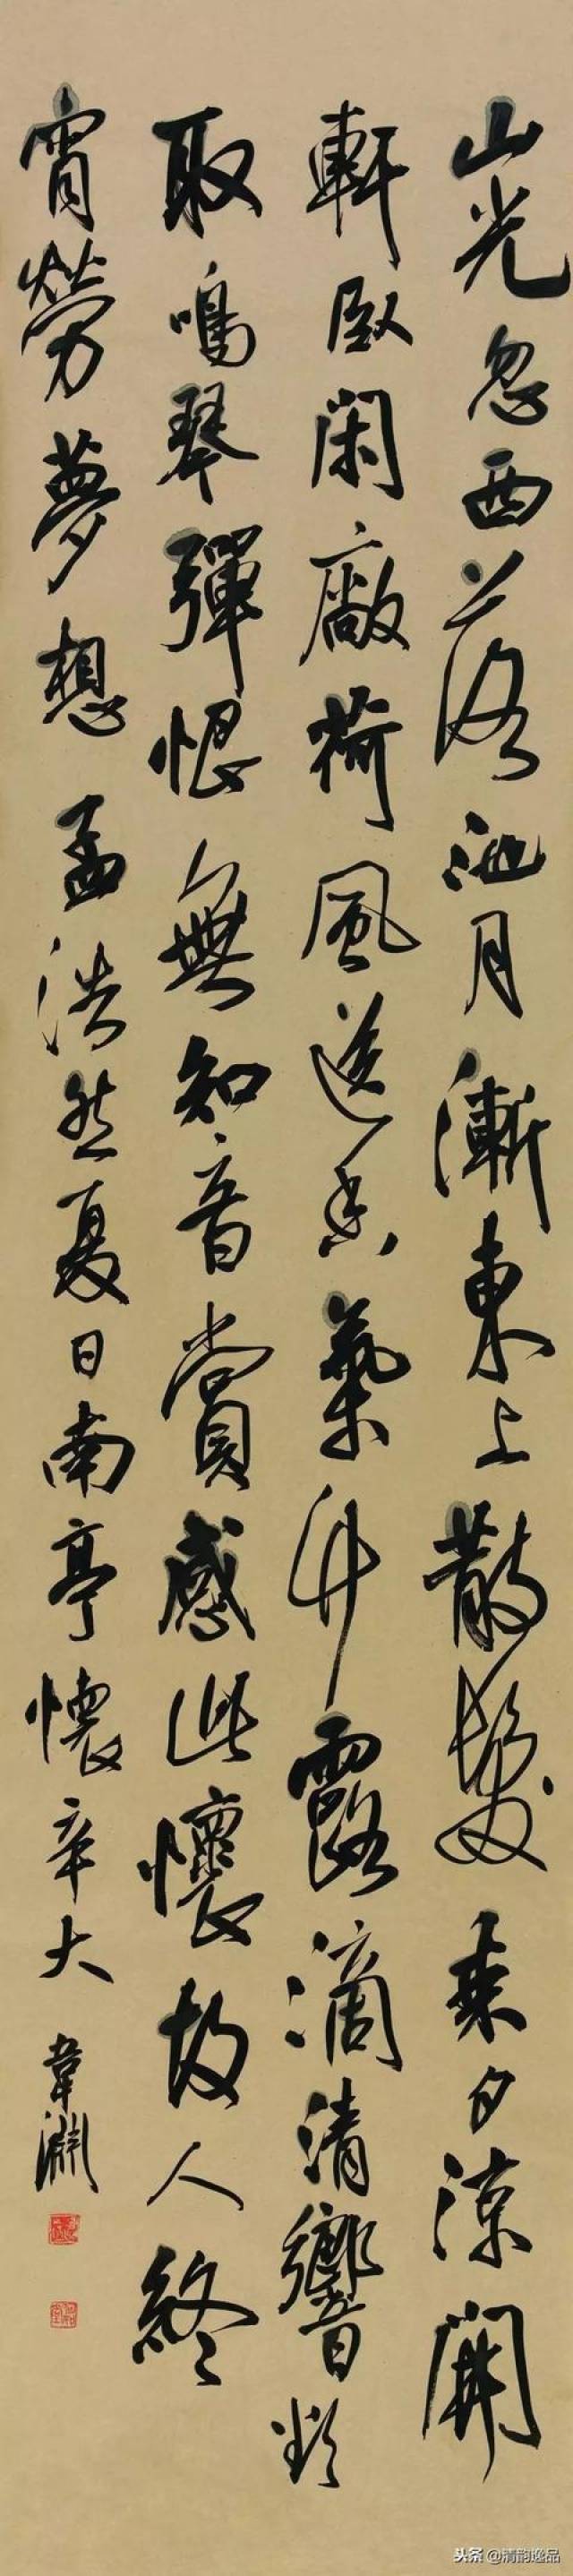 山光忽西落池月漸東上散髮乘夕涼開
軒臥閑敞荷風送香氣竹露滴清響欲
取鳴琴彈恨無知音賞感此懷故人終
宵勞夢想 孟浩然夏日南亭懷辛大 韋淵
头条 @清韵逸品